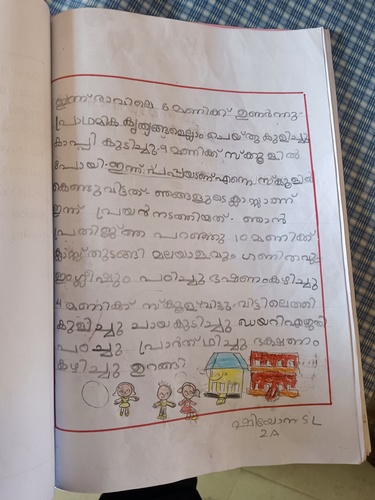 ഇന്ന് രാവിലെ 6 മണിക്ക് ഉണർന്നു.
പ്രാഥമിക കൃത്യങ്ങളെല്ലാം ചെയ്തു കുളിച്ചു
കാപ്പി കുടിച്ചു. 9 മണിക്ക് സ്കൂളിൽ
പോയി. ഇന്ന് പപ്പയാണ് എന്നെ സ്കൂളിൽ
കൊണ്ടുവിട്ടത്. ഞങ്ങളുടെ ക്ലാസ്സാണ്
ഇന്ന് പ്രയർ നടത്തിയത്. ഞാൻ
പ്രതിജ്ഞ പറഞ്ഞു 10 മണിക്ക്
ക്ലാസ്സ് തുടങ്ങി മലയാളവും ഗണിതവും
ഇംഗ്ലീഷും പഠിച്ചു ഭഷണം കഴിച്ചു
4 മണിക്ക് സ്കൂൾ വിട്ടു. വീട്ടിലെത്തി
കുളിച്ചു ചായ കുടിച്ചു ഡയറി എഴുതി
പഠിച്ചു പ്രാർത്ഥിച്ചു ഭക്ഷണം
കഴിച്ചു ഉറങ്ങി
S L
2A